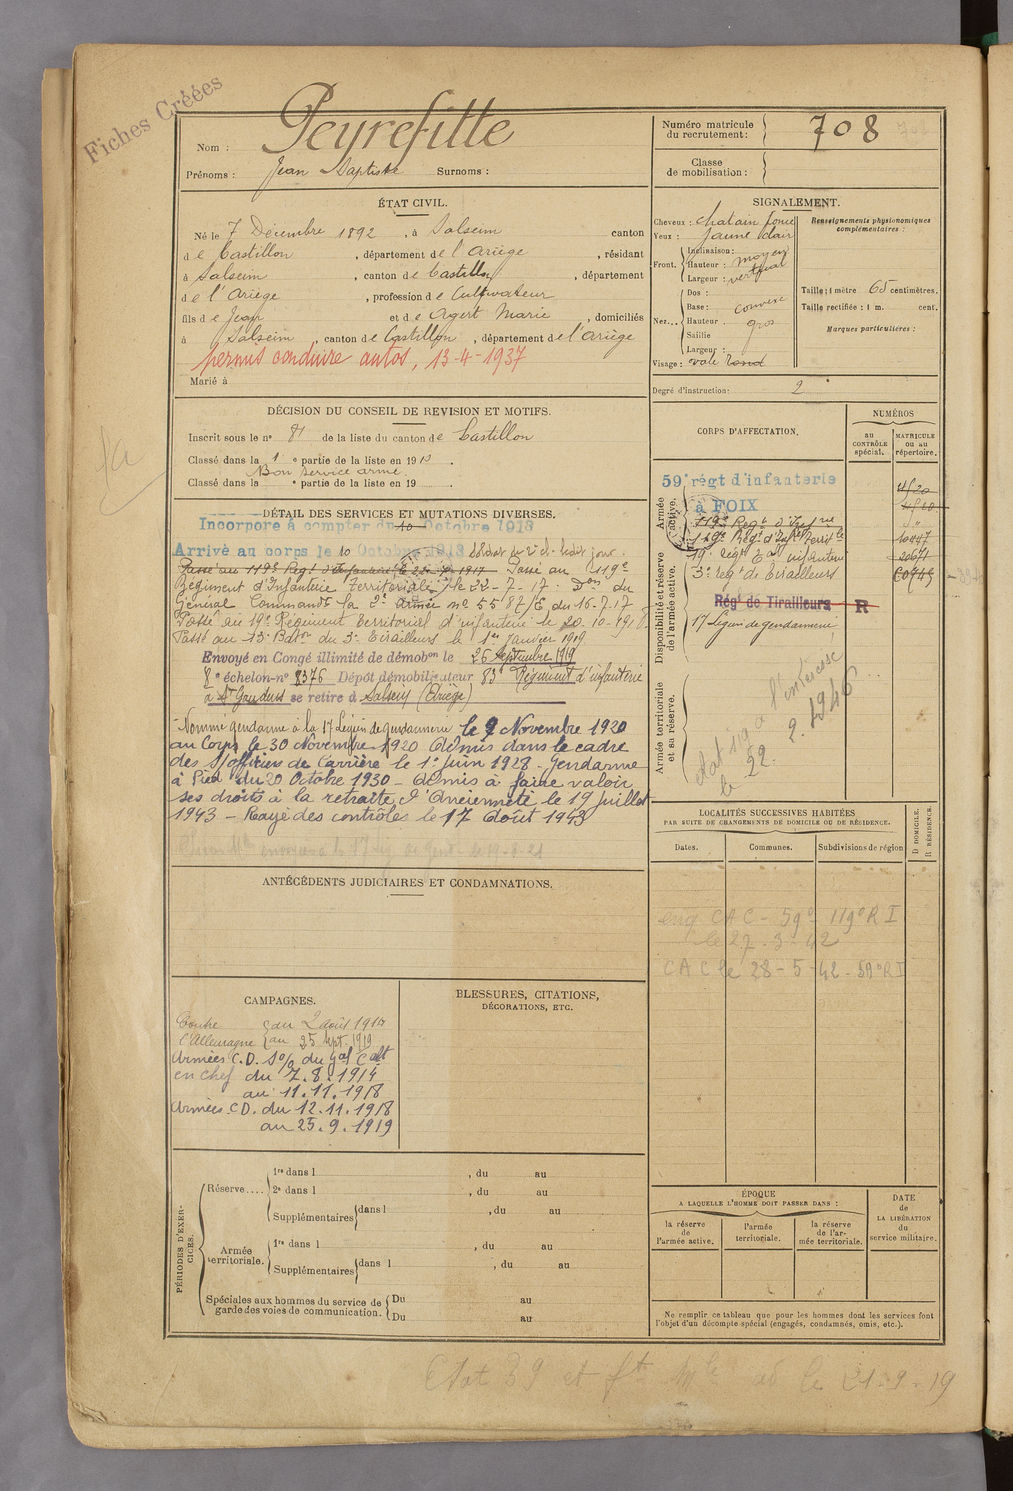 Fiches Créées
Nom : Peyrefitte
Prénoms : Jean Baptiste Surnoms :
Numéro matricule du recrutement : 708
Classe de mobilisation :
ÉTAT CIVIL.
Né le 7 Décembre 1892, à Salsein canton
de Castillon, département de l'Ariège, résidant
à Salsein, canton de Castillon, département
de l'Ariège, profession de Cultivateur
fils de Jean et de Agert Marie, domiciliés
à Salsein, canton de Castillon, département de l'Ariège
permis conduire autos, 13-4-1937
Marié à
SIGNALEMENT.
Cheveux : chatain foncé
Yeux : jaune clair
Front. Inclinaison :
Hauteur : moyen
Largeur : vertical
Nez... Dos :
Base : convexe
Hauteur gros
Saillie
Largeur :
Visage : vale rond
Renseignements physionomiques complémentaires :
Taille : 1 mètre 65 centimètres.
Taille rectifiée : 1 m. cent.
Marques particulières :
Degré d'instruction : 2
DÉCISION DU CONSEIL DE REVISION ET MOTIFS.
Inscrit sous le n° 81 de la liste du canton de Castillon
Classé dans la 1e partie de la liste en 1913.
Bon service armé.
Classé dans la e partie de la liste en 19
DÉTAIL DES SERVICES ET MUTATIONS DIVERSES.
Incorporé à compter du 10 Octobre 1913
Arrivé au corps le 10 Octobre 1913 Soldat de 2e cl. ledit jour.
Passé au 119e Regt d'Infanterie le 22-7-1917 Passé au 119e
Régiment d'Infanterie Territoriale le 22-7-17. Don du
Général Commandt la 2e armée no 5587/E du 16-7-17
Passé au 19e Régiment territorial d'infanterie le 20-10-1918
Passé au 13e Baton du 3e tirailleurs le 1er Janvier 1919
Envoyé en Congé illimité de démobon le 26 Septembre 1919
8e échelon-no 8376 Dépôt démobilisateur 83e Régiment d'infanterie
à St Gaudens se retire à Salsein (Ariège)
Nommé gendarme à la 17 Légion de gendarmerie le 9 Novembre 1920
au Corps le 30 Novembre 1920 Admis dans le cadre
des S/officiers de Carrière le 1er juin 1928 - Gendarme
à Pied du 20 Octobre 1930 - Admis à faire valoir
ses droits à la retraite d'Ancienneté le 19 Juillet
1943 - Rayé des contrôles le 17 Août 1943
ANTÉCÉDENTS JUDICIAIRES ET CONDAMNATIONS.
CORPS D'AFFECTATION.
NUMÉROS
AU CONTRÔLE spécial.
MATRICULE ou au répertoire.
Armée active.
59e régt d'infanterie
à FOIX
Disponibilité et réserve de l'armée active.
119e Regt d'Infrie
119e Regt d'Inft Territle
19e régt Eal infanterie
3e regt de Tirailleurs
Régt de Tirailleurs R
17 Légion de gendarmerie
10447
20671
Armée territoriale et sa réserve.
état 119 a l'intéressé
le 22. 2. 1946
LOCALITÉS SUCCESSIVES HABITÉES
PAR SUITE DE CHANGEMENTS DE DOMICILE OU DE RÉSIDENCE.
Dates. Communes. Subdivisions de région
D DOMICILE.
R RÉSIDENCE.
CAC - 59e 119e R I
le 27-3-42
CAC le 28-5-42 - 59e RI
CAMPAGNES.
Contre l'Allemagne
du 2 août 1914
au 25 Sept. 1919
Armées C.D. S/o du Gal Cdt
en chef du 7.8.1914
au 11.11.1918
Armées CD. du 12.11.1918
au 25.9.1919
BLESSURES, CITATIONS, DÉCORATIONS, ETC.
PÉRIODES D'EXERCICES.
Réserve....
1re dans l , du au
2e dans l , du au
Supplémentaires dans l , du au
Armée territoriale.
1re dans l , du au
Supplémentaires dans l , du au
Spéciales aux hommes du service de garde des voies de communication.
Du au
Du au
ÉPOQUE
A LAQUELLE L'HOMME DOIT PASSER DANS :
la réserve de l'armée active.
l'armée territoriale.
la réserve de l'armée territoriale.
DATE de LA LIBÉRATION du service militaire.
Ne remplir ce tableau que pour les hommes dont les services font
l'objet d'un décompte spécial (engagés, condamnés, omis, etc.).
Etat 39 et le 21-9-19